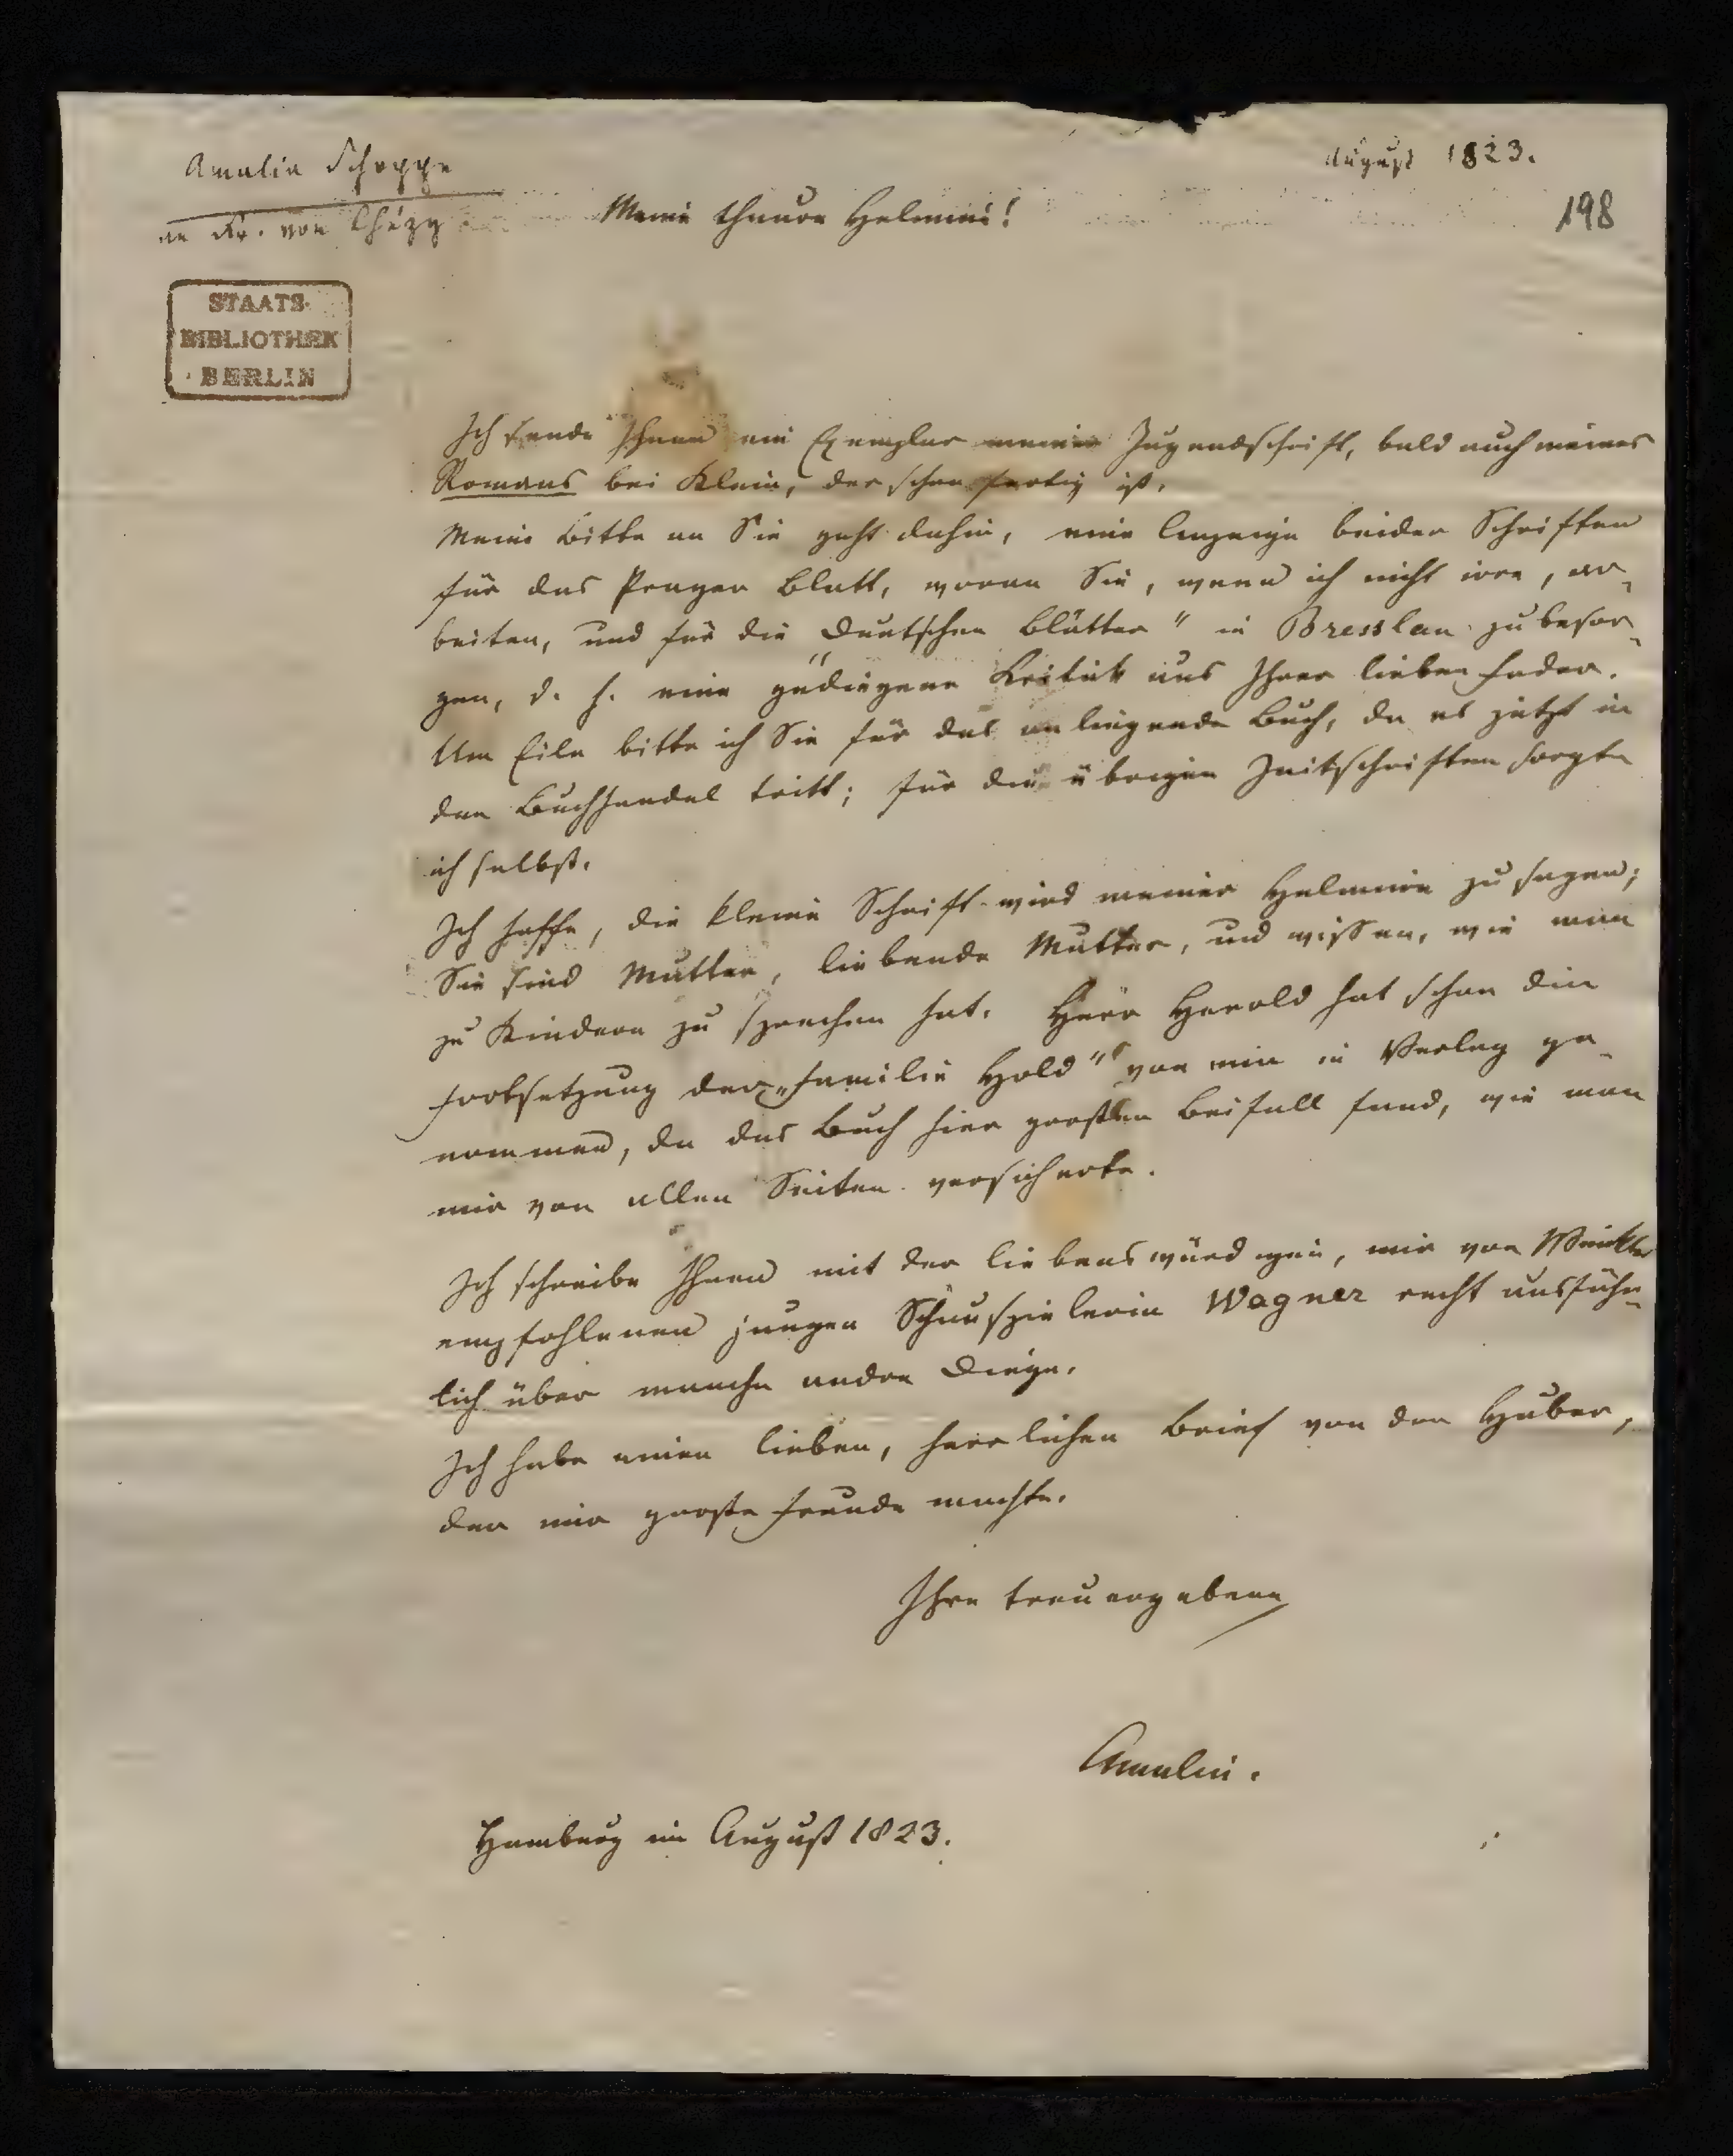 Amalia Schoppe
an Fr. von Chézy
August 1823.
198
STAATS-
BIBLIOTHEK
BERLIN
Meine theure Helmine!
Ich sende Ihnen ein Exemplar meiner Jugendschrift, bald auch meines
Romans bei Klein, der schon fertig ist.
Meine Bitte an Sie geht dahin, eine Anzeige beider Schriften
für das Prager Blatt, woran Sie, wenn ich nicht irre, ar-
beiten, und für die „Deutschen Blätter" in Bresslau zu besor-
gen, d. h. eine gediegene Kritik aus Ihrer lieben Feder.
Um Eile bitte ich Sie für das anliegende Buch, da es jetzt in
den Buchhandel tritt; für die übrigen Zeitschriften sorgte
ich selbst.
Ich hoffe, die kleine Schrift wird meiner Helmine zusagen;
Sie sind Mutter, liebende Mutter, und wissen, wie man
zu Kindern zu sprechen hat. Herr Herold hat schon die
Fortsetzung der „Familie Hold" von mir in Verlag ge-
nommen, da das Buch hier großen Beifall fand, wie man
mir von allen Seiten versicherte.
Ich schreibe Ihnen mit der liebenswürdigen, mir von Winkler
empfohlenen jungen Schauspielerin Wagner recht ausführ-
lich über manche andre Dinge.
Ich habe einen lieben, herrlichen Brief von der Huber,
der mir große Freude machte.
Ihre treu ergebene
Amalie.
Hamburg im August 1823.